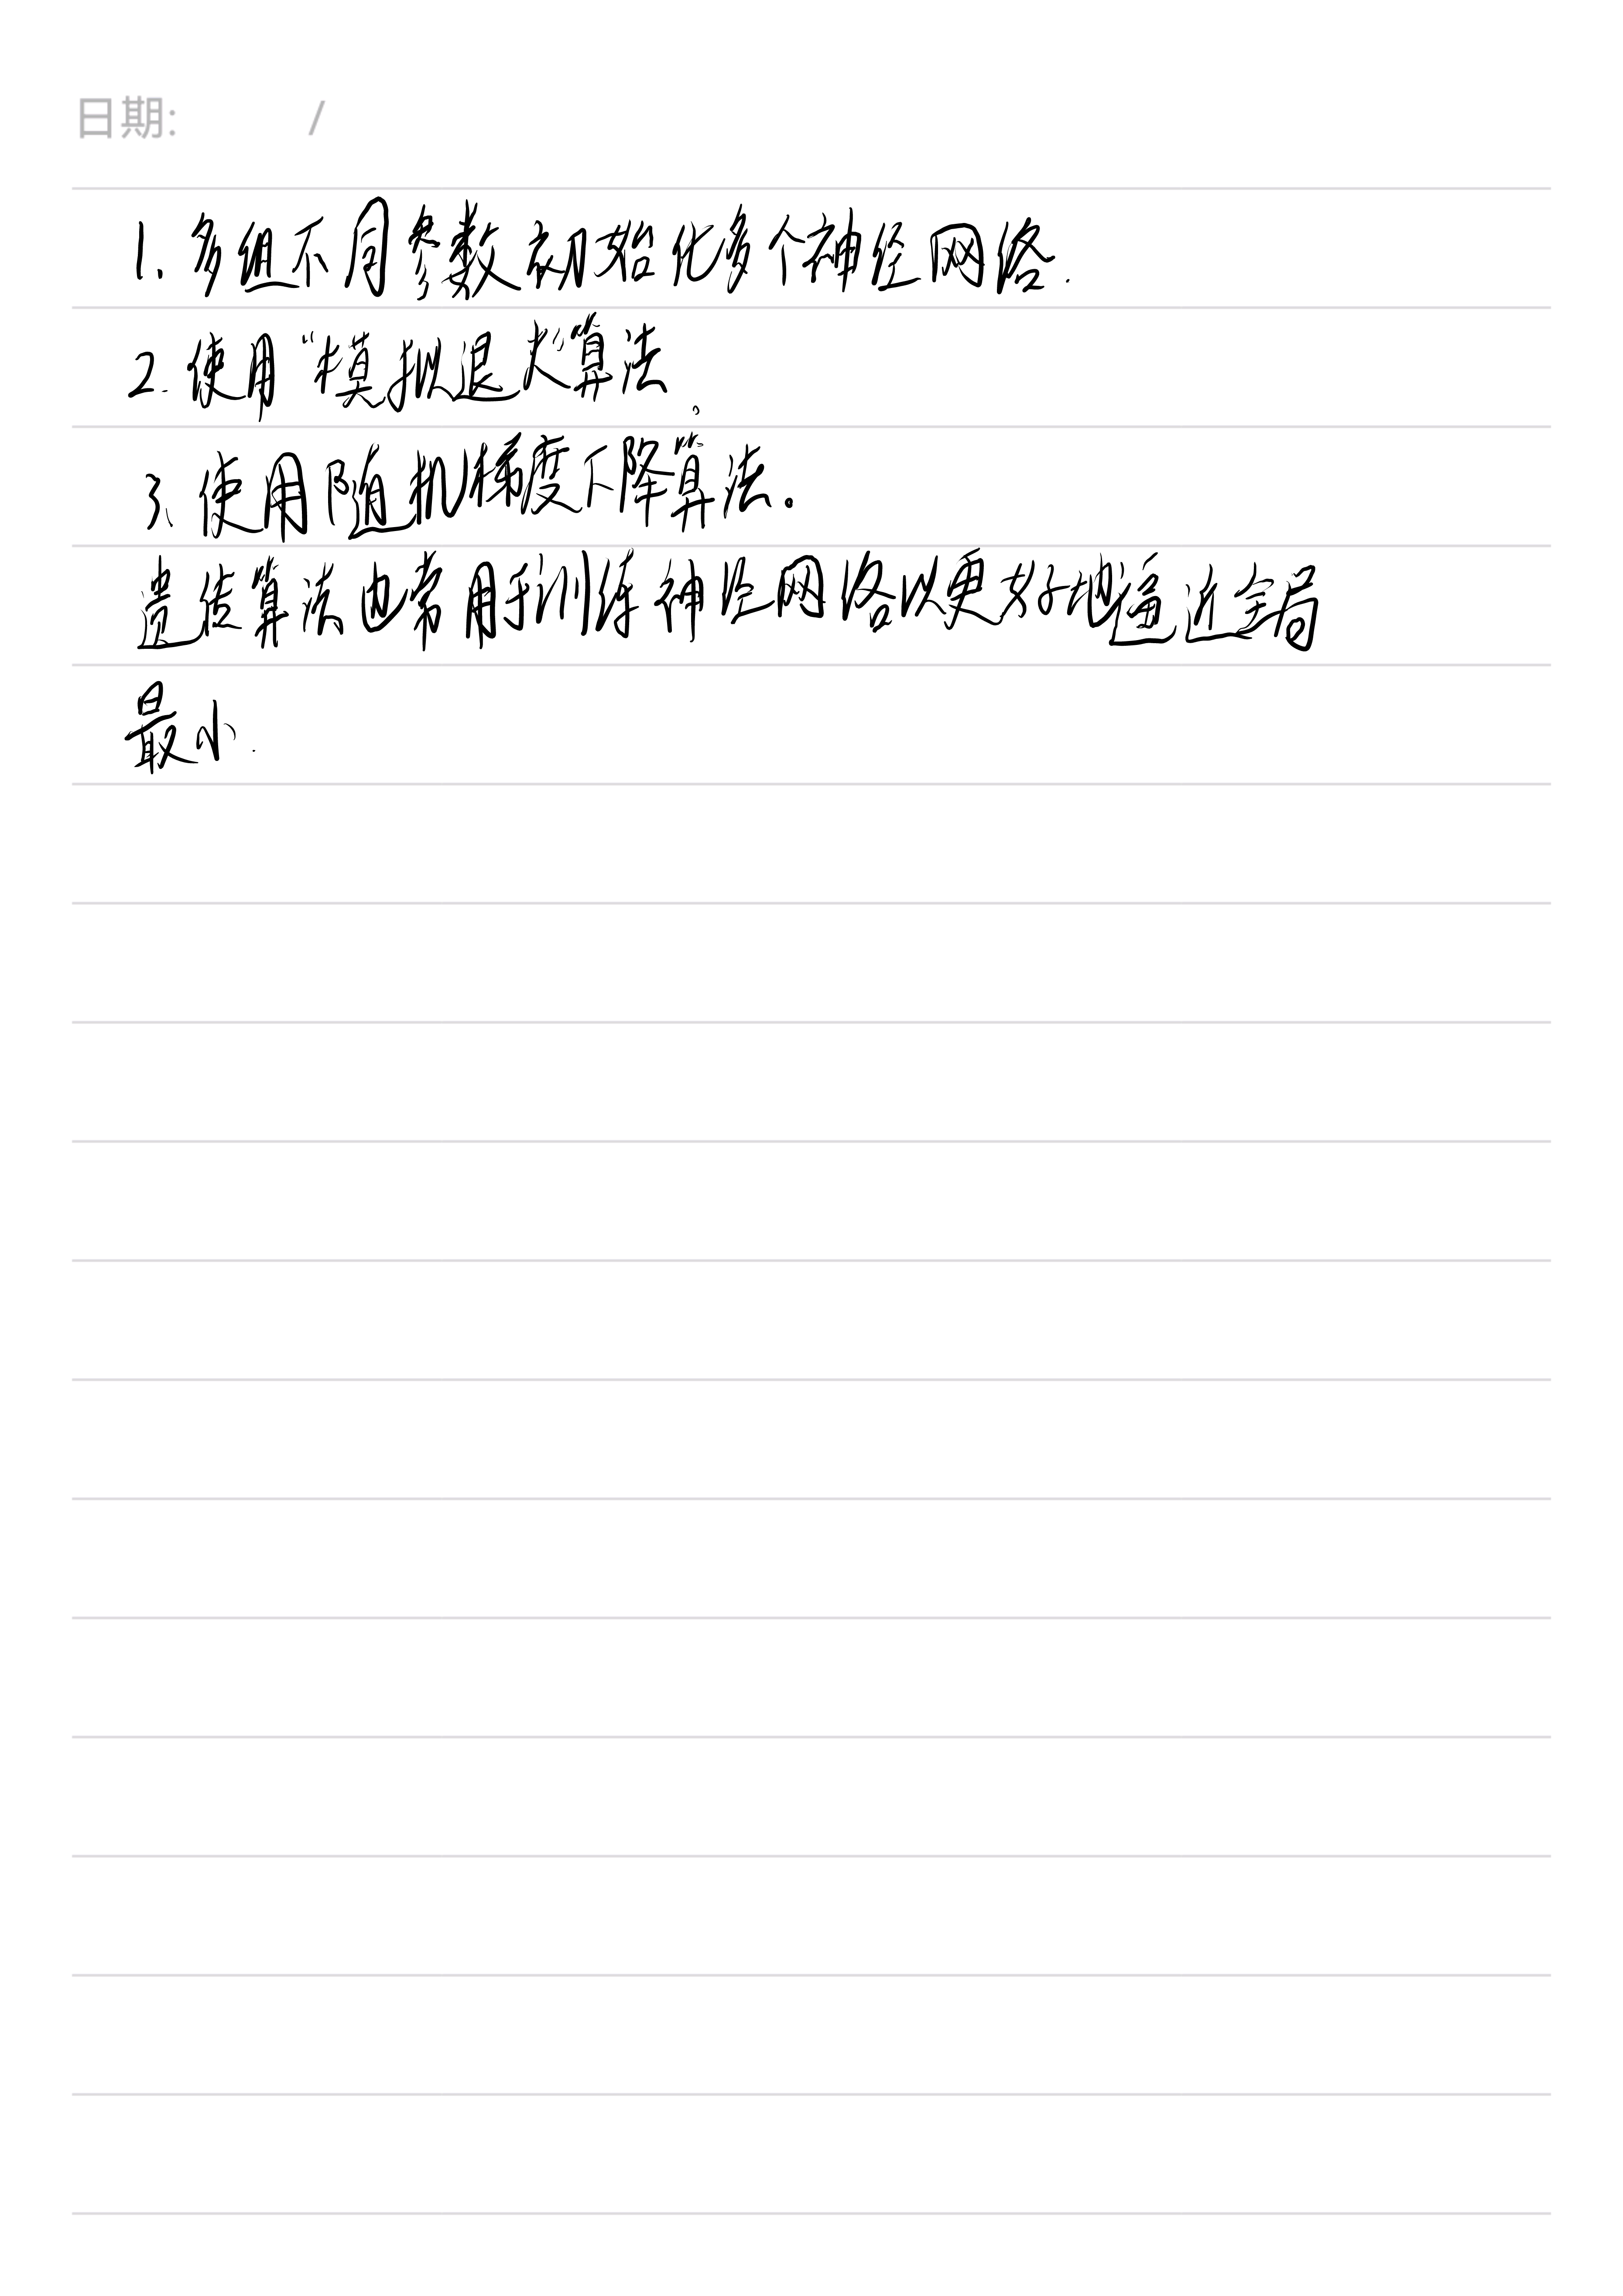 日期: /
1. 多组不同参数初始化多个神经网络.
2. 使用“模拟退火”算法。
3. 使用随机梯度下降算法。
遗传算法也常用于训练神经网络以更好地逼近全局
最小.